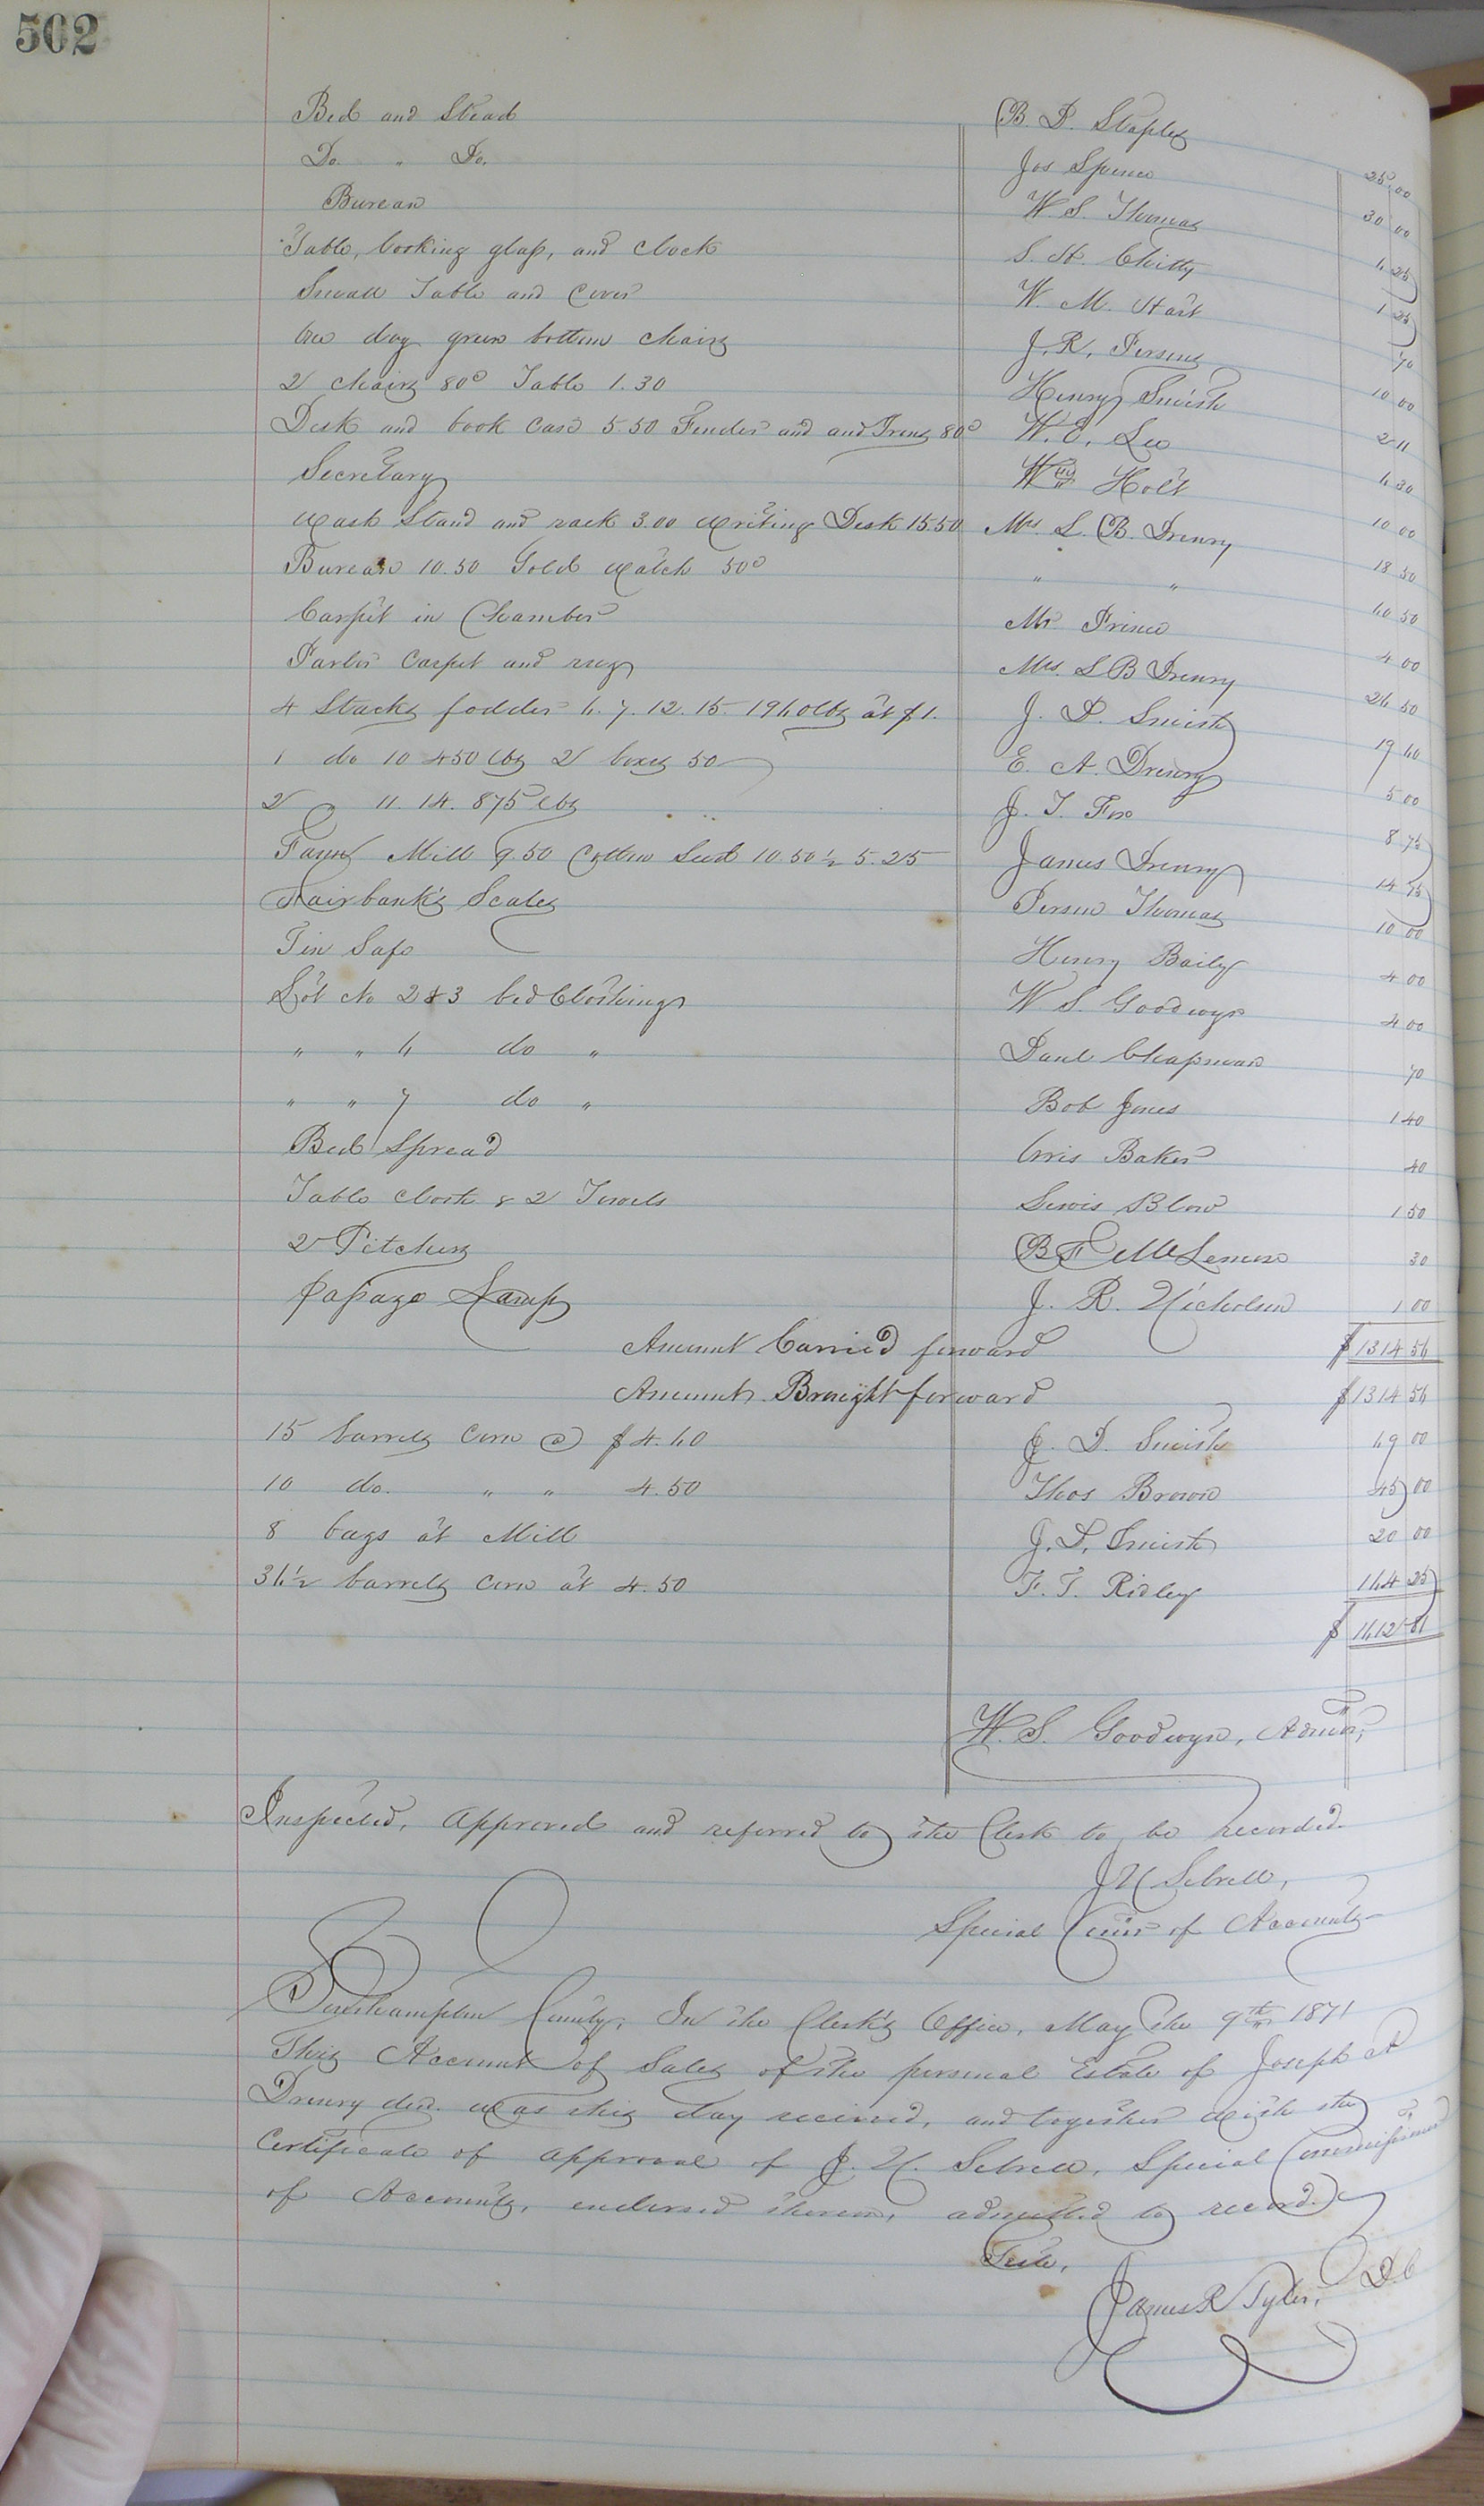 502
Bed and Stead B. D. Staples 25.00
Do. " Do. Jos Spence 30 00
Bureau W. S. Thomas 6 25
Table, looking glass, and clock S. H. Chitty 1 25
Small Table and Cover W. M. Hart 70
One doz green bottom chairs J. R. Persons 10 00
2 chairs 80c Table 1.30 Henry Smith 2 11
Desk and book case 5.50 Fender and and Irons 80c W. E. Lee 6 30
Secretary Wm Holt 10 00
Wash Stand and rack 3.00 Writing Desk 15.50 Mrs L. B. Drewry 18 50
Bureau 10.50 Gold Watch 50c " " 60 50
Carpet in Chamber Mr Prince 4 00
Parlor Carpet and rug Mrs. L B Drewry 26 50
4 Stacks fodder 6. 7. 12. 15. 1960 lbs at $1. J. D. Smith 19 60
1 do 10 450 lbs 2 boxes 50 E. A. Drewry 5 00
2 " 11. 14. 875 lbs J. T. Fox 8 75
Fann Mill 9.50 Cotton Seed 10.50 ½ 5.25 James Drewry 14 75
Fairbank's Scales Person Thomas 10 00
Tin Safe Henry Baily 4 00
Lot No 2 & 3 bed Clothing W. S. Goodwyn 4 00
" " 6 do " Danl Chapman 70
" " 7 do " Bob Jones 1 40
Bed Spread Orris Baker 40
Table cloth & 2 Towels Lewis Blow 1 50
2 Pitchers B F McLemore 30
passage Lamp J. R. Nicholson 1 00
Amount Carried forward $1314 56
Amount Brought forward $1314 56
15 barrels Corn @ $4.60 J. D. Smith 69 00
10 do. " " 4.50 Thos Brown 45 00
8 bags at Mill J. D. Smith 20 00
36½ barrels Corn at 4.50 F. T. Ridley 164 25
$1612 81
W. S. Goodwyn, Admor,
Inspected, approved and referred to the Clerk to be recorded.
J H Sebrell,
Special Comr of Accounts
Southampton County, In the Clerk's Office, May the 9th 1871
This Account of Sales of the personal Estate of Joseph A
Drewry decd. was this day received, and together with the
Certificate of approval of J. H. Sebrell, Special Commissioner
of Accounts, endorsed thereon, admitted to record.
Teste,
James R Tyler, D.C